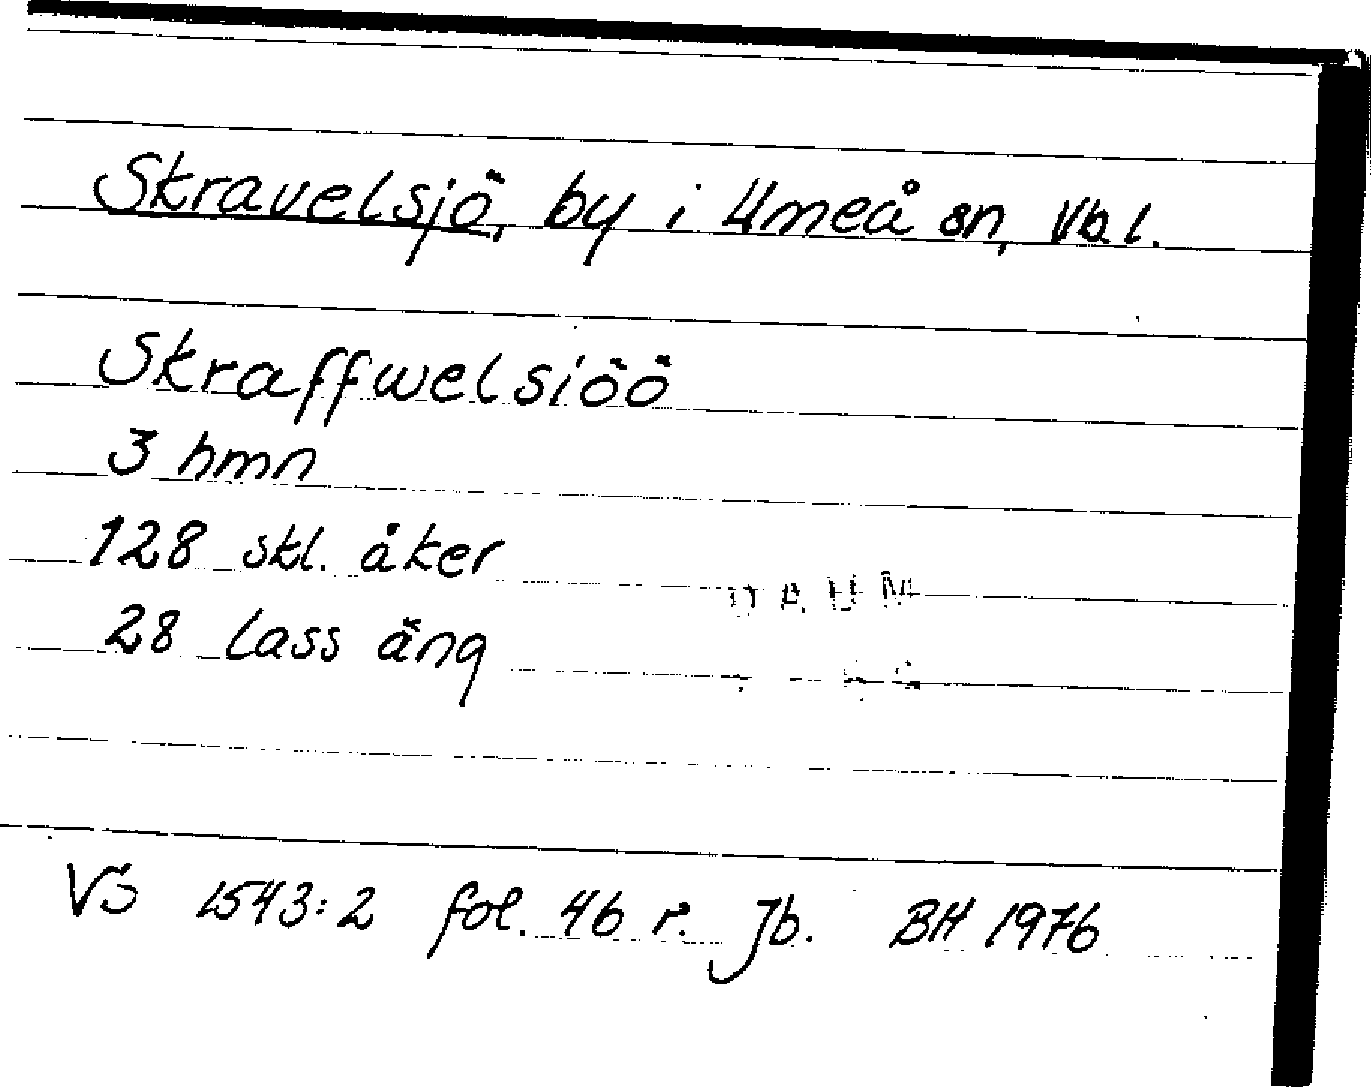 Skravelsjö, by i Umeå sn, Vb. l.
Skraffwelsiöö
3 hmn
128 skl. åker
DAUM
28 lass äng
VS 1543:2 fol. 46 r. Jb. BH 1976